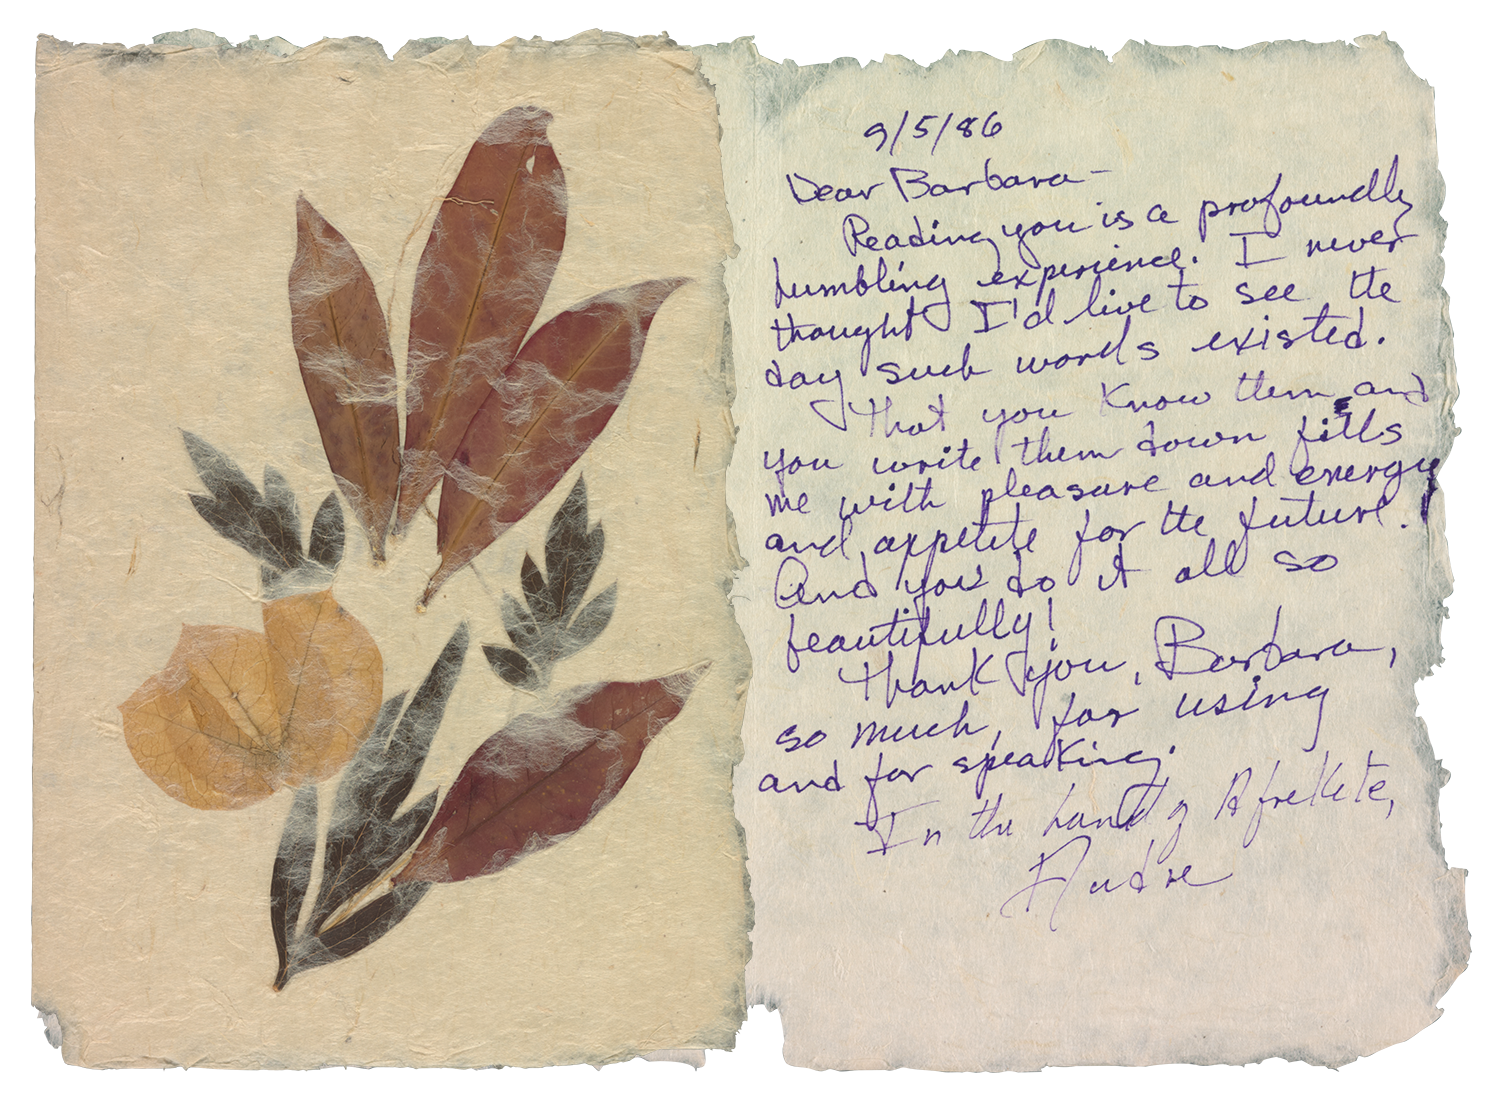 9/5/86
Dear Barbara—
Reading you is a profoundly
humbling experience. I never
thought I'd live to see the
day such words existed.
That you know them and
you write them down fills
me with pleasure and energy
and appetite for the future.
And you do it all so
beautifully!
Thank you, Barbara,
so much, for using
and for speaking.
In the hand of Afrekete,
Audre